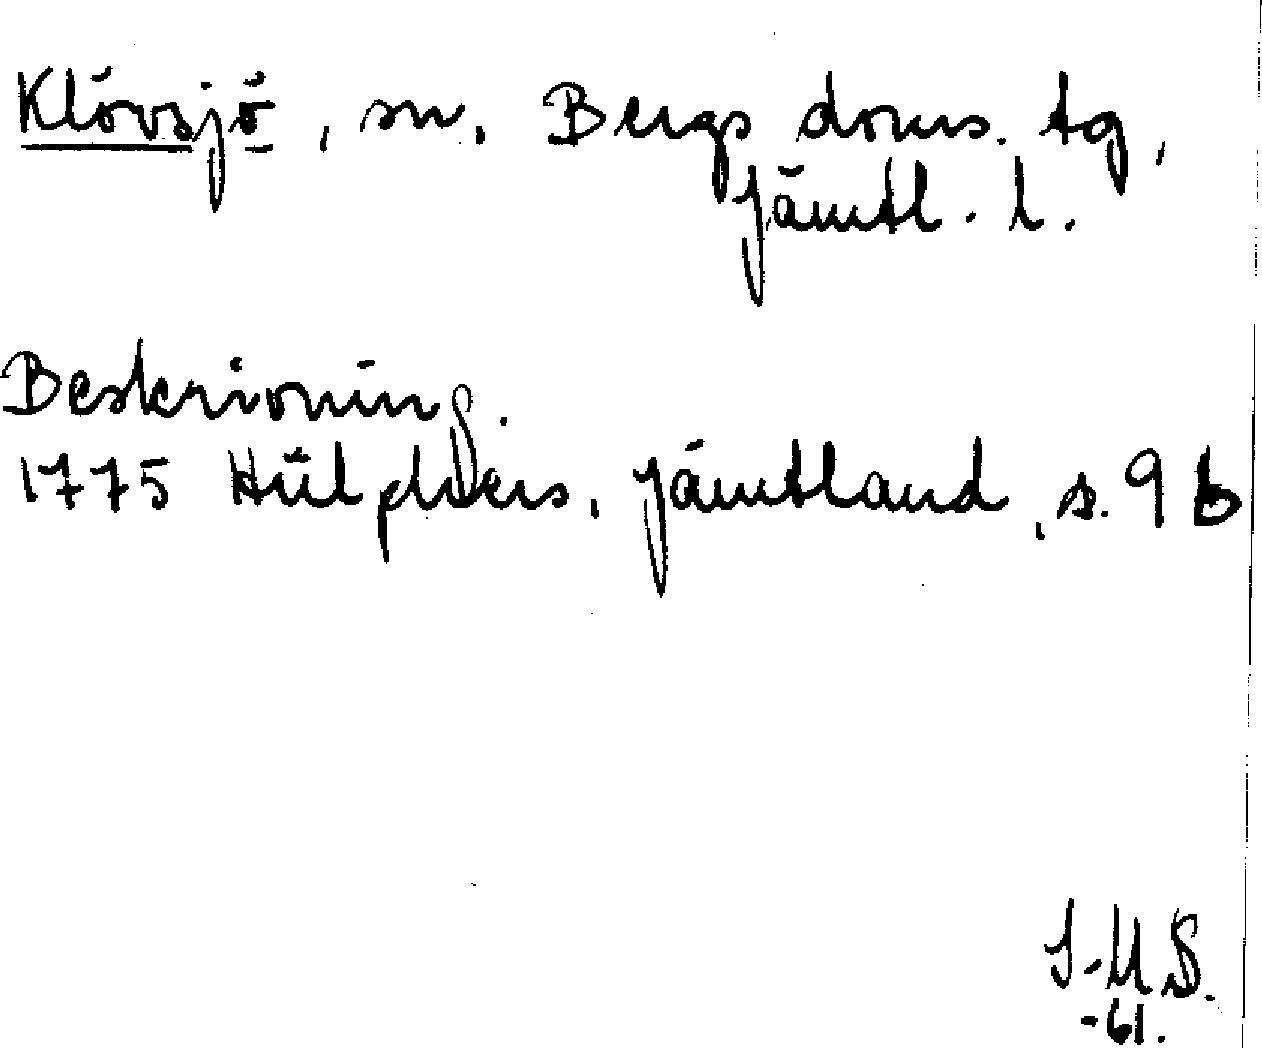 Klövsjö, sn. Bergs doms. tg,
Jämtl. l.
Beskrivning.
1775 Hülphers, Jämtland, s. 96
I-M S.
-61.